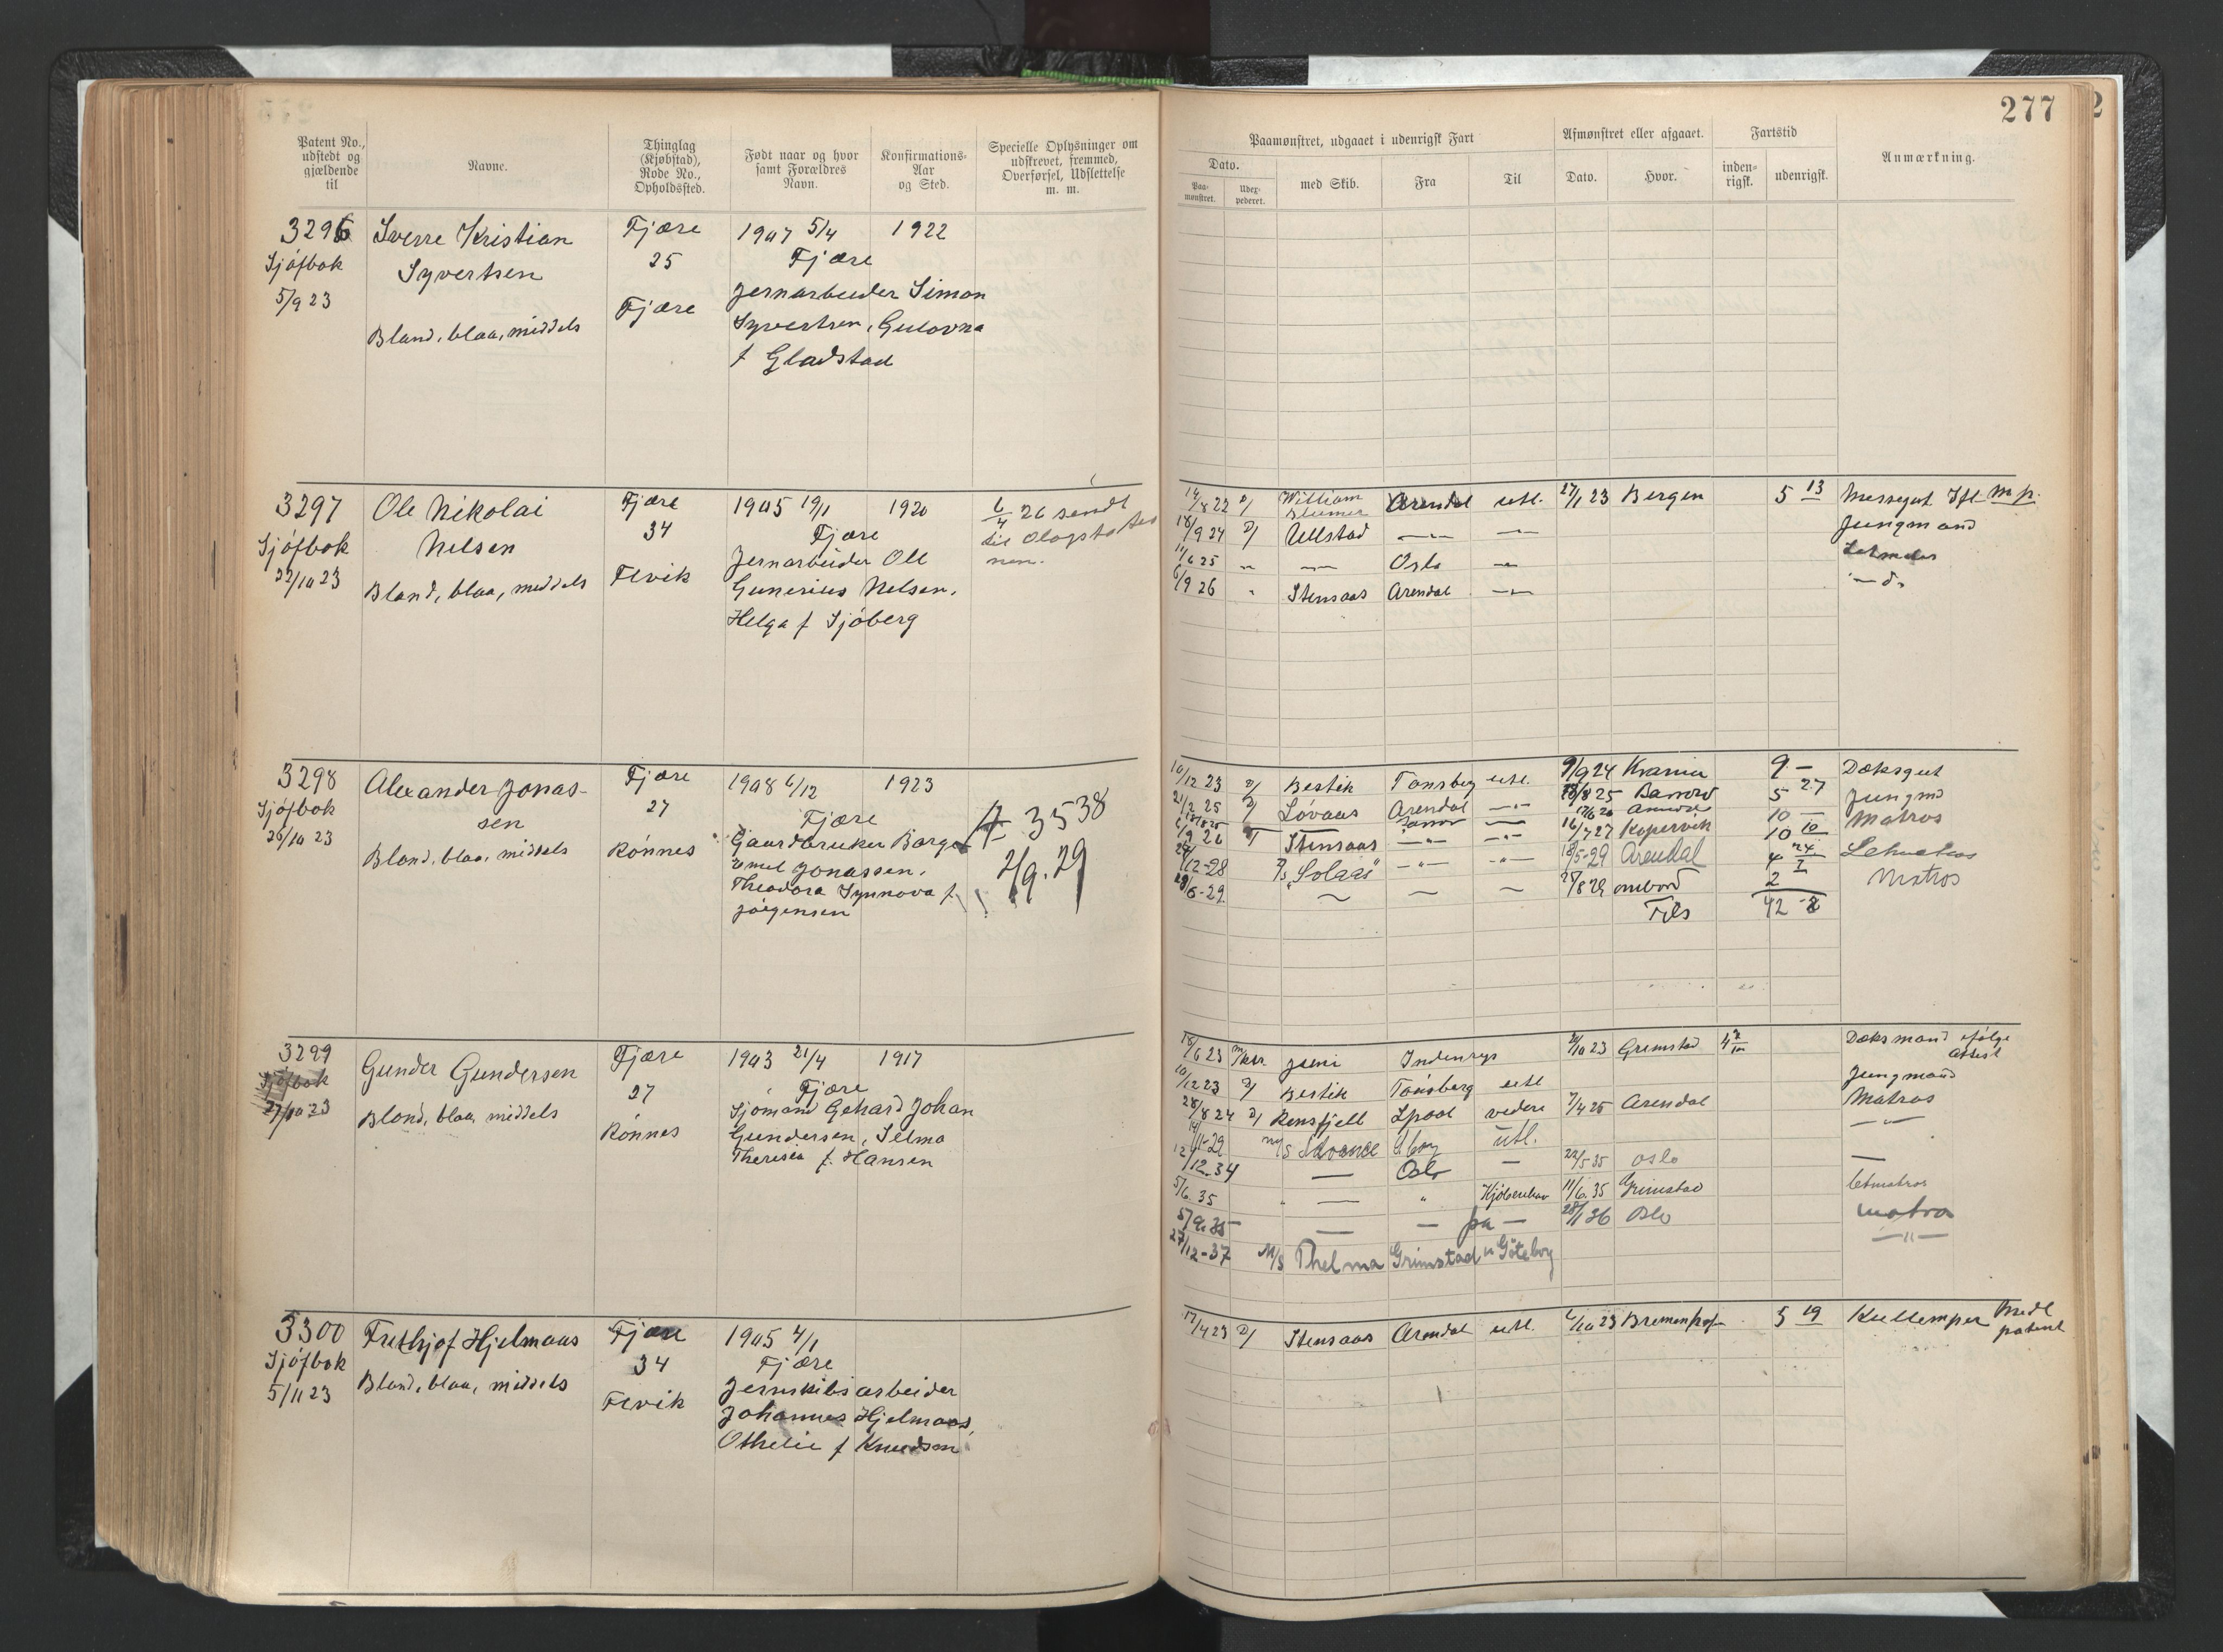 277
Patent No., udstedt og gjældende til
Navne.
Thinglag (Kjøbstad), Rode No., Opholdssted.
Født naar og hvor samt Forældres Navn.
Konfirmations-Aar og Sted.
Specielle Oplysninger om udskrevet, fremmed, Overførsel, Udslettelse m. m.
Paamønstret, udgaaet i udenrigsk Fart
Dato.
Paa-mønstret.
Udex-pederet.
med Skib.
Fra
Til
Afmønstret eller afgaaet.
Dato.
Hvor.
Fartstid
inden-rigsk.
udenrigsk.
Anmærkning.
3296 Sverre Kristian Fjære 1907 5/4 1922
Sjøfbok Syvertsen 25 Fjære
5/9 23 Fjære Jernarbeider Simon
Blond, blaa, middels Syvertsen, Gulovna
f Gladstad
3297 Ole Nikolai Fjære 1905 19/1 1920 6/4 26 sendt
Sjøfbok Nelsen 34 Fjære til
22/10 23 Blond, blaa, middels Fevik Jernarbeider Ole
Gunerius Nelsen,
Helga f Sjøberg
14/8 22 D/ William Blumer Arendal utl. 27/1 23 Bergen 5 13 Messegut
18/9 24 D/ Ullstad — " — — " — Jungmand
11/6 25 " — " — Oslo — " — Letmatros
6/9 26 " Stensaas Arendal — " — — d.
3298 Alexander Jonas- Fjære 1908 6/12 1923
Sjøfbok sen 27 Fjære
26/10 23 Blond, blaa, middels Rønnes Gaardbruker Borge
3538
Emil Jonassen,
2/9.29
Theodora Synnova f.
Jørgensen
10/12 23 D/ Bestik Tønsberg utl. 9/9 24 9 – Dæksgut
21/2 25 D/ Løvaas Arendal — " — 18/8 25 5 27 Jungmd
10 — Matros
6/9 26 Stensaas — " — — " — 16/7 27 Kopervik 10 10 Letmatros
12-28 D/s "Solaas" — " — — " — 18/5-29 Arendal 4 24
28/6-29 27/8 29 ombord 2 Matros
42
3299 Gunder Gundersen Fjære 1903 21/4 1917
Sjøfbok 27 Fjære
27/10 23 Blond, blaa, middels Rønnes Sjømand Gehard Johan
Gundersen, Selma
Theresia f. Hansen
18/6 23 Juni Indenrigs Grimstad Dæksmand ifølge attest
10/12 23 D/ Bestik Tønsberg utl Jungmand
28/8 24 D/ Rensfjell Lpool videre 7/4 25 Arendal Matros
11-29 m/s Advance utl. — " —
12/12.34 — Oslo — 22/5 35 Oslo —
5/6.35 " — " Kjøbenhavn 11/6.35 Grimstad letmatros
5/9.35 — — på — 28/1 36 Oslo matros
27/12-37 M/S Thelma Grimstad Göteborg — " —
3300 Frithjof Hjelmaas Fjære 1905 4/1
Sjøfbok 34 Fjære
5/11 23 Blond, blaa, middels Fevik Jernskibsarbeider
Johannes Hjelmaas,
Othelie f Knudsen
17/4 23 D/ Stensaas Arendal utl. 6/10 23 5 19 Kullemper